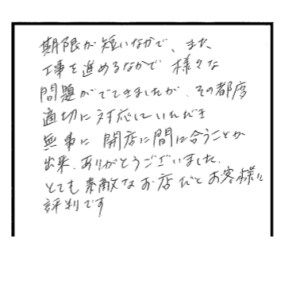 期限が短いなかで、また、
工事を進めるなかで 様々な
問題がでてきましたが、その都度
適切に対応していただき
無事に 開店に間に合うことが
出来、ありがとうございました。
とても素敵なお店だとお客様に
評判です